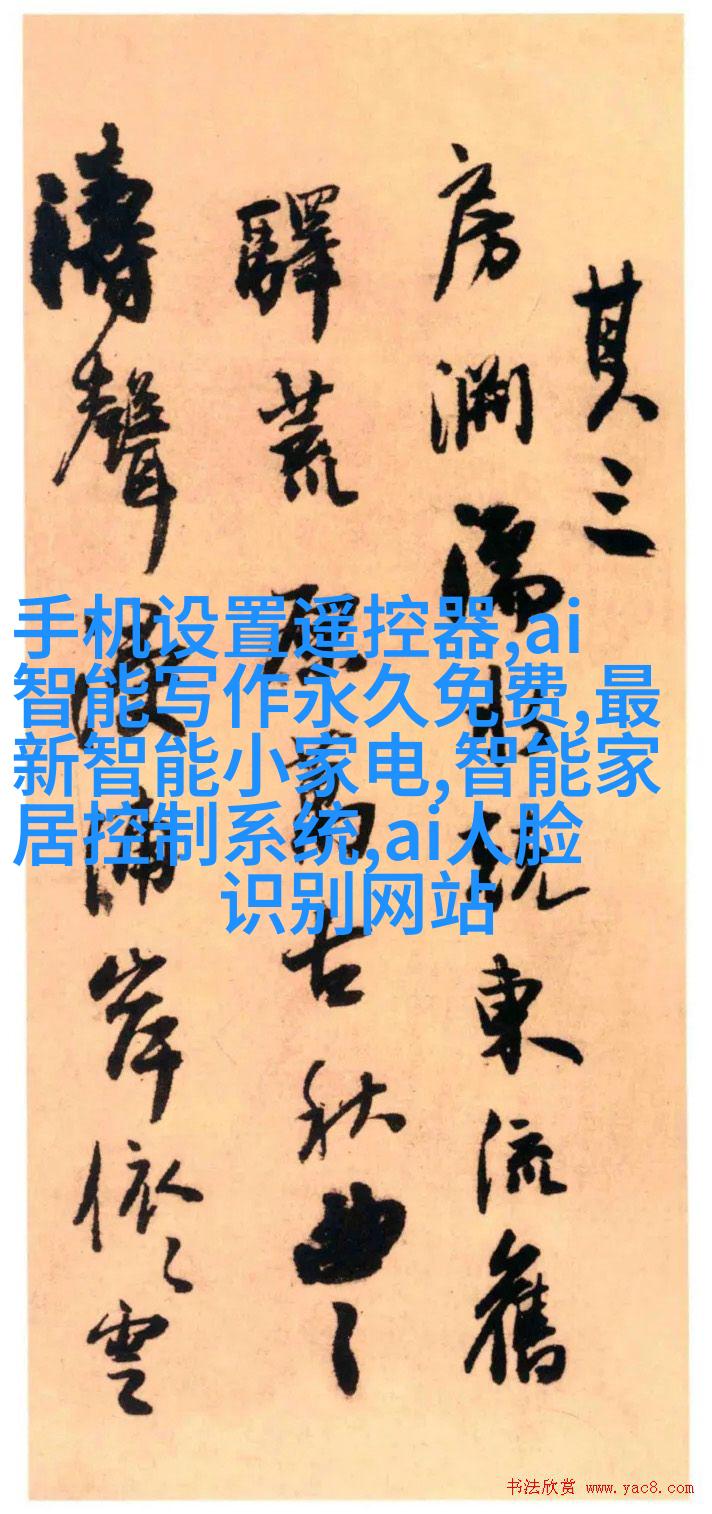 其三
房 東流舊
驛荒 古秋曲〻
濤聲 滿岸依〻雲
手机设置遥控器,ai
智能写作永久免费,最
新智能小家电,智能家
居控制系统,ai人脸
识别网站
书法欣赏 www.yac8.com